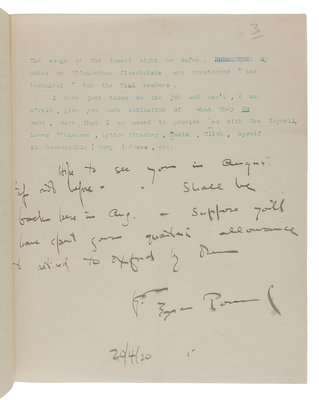 3
The songs of the desert might be safer. My
notes on Elizabethan Classicists are considered "too
technical" for the Dial readers.
I have just taken on the job and can't, I am
afraid, give you much indication of what they do
want, save that I am asked to provide 'em with Mrs Meynell,
Lytton Strachey, Yeats, Eliot, myself
in homeopathic (very) doses, etc.
Hope to see you in August
if not before - - Shall be
back here in Aug. - Suppose you'll
have spent your quarter's allowance
& retired to Oxford by then
Ezra Pound
20/4/20